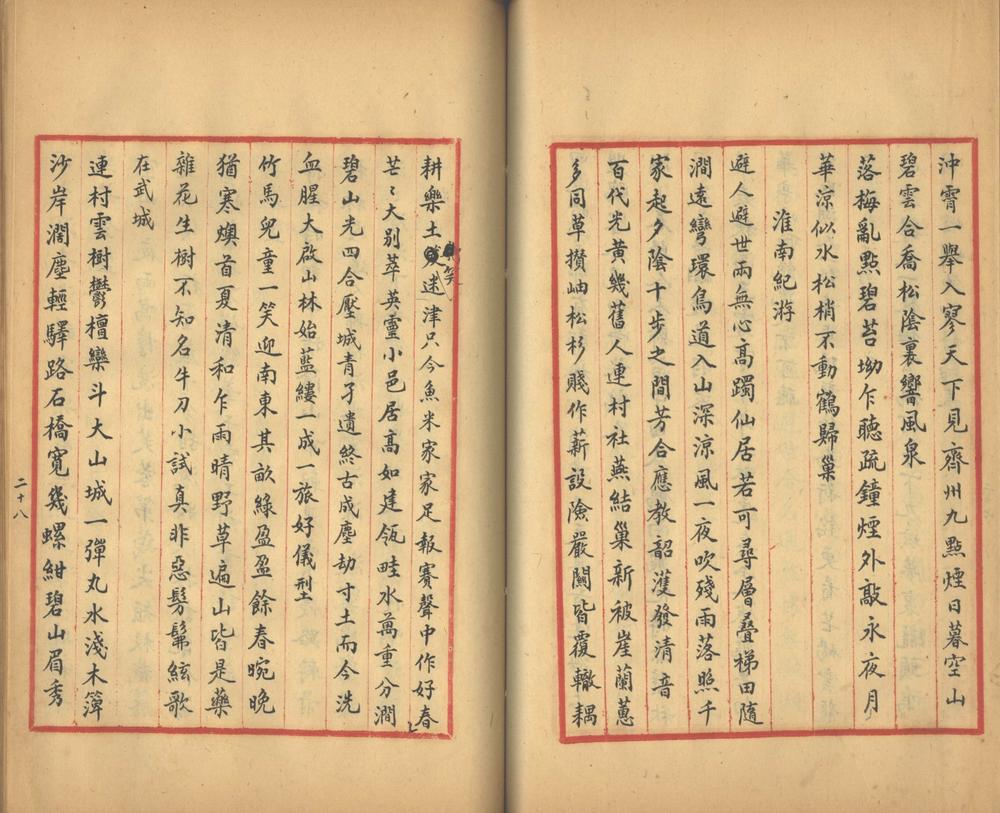 沖霄一舉入寥天下見齊州九點煙日暮空山
碧雲合喬松陰裏響風泉
落梅亂點碧苔坳乍聽疏鐘煙外敲永夜月
華涼似水松梢不動鶴歸巢
淮南紀游
避人避世兩無心高躅仙居若可尋層疊梯田隨
澗遠彎環鳥道入山深涼風一夜吹殘雨落照千
家起夕陰十步之間芳合應教韶濩發清音
百代光黃幾舊人連村社燕結巢新被崖蘭蕙
多同草攢岫松杉賤作薪設險嚴關皆覆轍耦
耕樂土笑迷津只今魚米家家足報賽聲中作好春
芒〻大別萃英靈小邑居高如建瓴畦水萬重分澗
碧山光四合壓城青孑遺終古成塵劫寸土而今洗
血腥大啟山林始藍縷一成一旅好儀型
竹馬兒童一笑迎南東其畝綠盈盈餘春晼晚
猶寒燠首夏清和乍雨晴野草遍山皆是藥
雜花生樹不知名牛刀小試真非惡髣髴絃歌
在武城
連村雲樹鬱檀欒斗大山城一彈丸水淺木簰
沙岸濶塵輕驛路石橋寬幾螺紺碧山眉秀
二十八